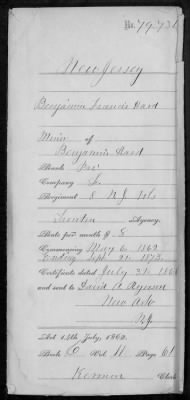 No. 79,731
New Jersey
Benjamin Francis Hard
Minor of
Benjamin Hard
Rank Pri
Company
Regiment 8 N.J. Vols
Trenton Agency.
Rate per month 8
Commencing May 6, 1862
Ending Sept. 21, 1873.
Certificate dated July 21, 1866
and sent to David A. Ryerson
New Ark
N.J.
Act 14th July, 1862.
Book Vol. H Page 61